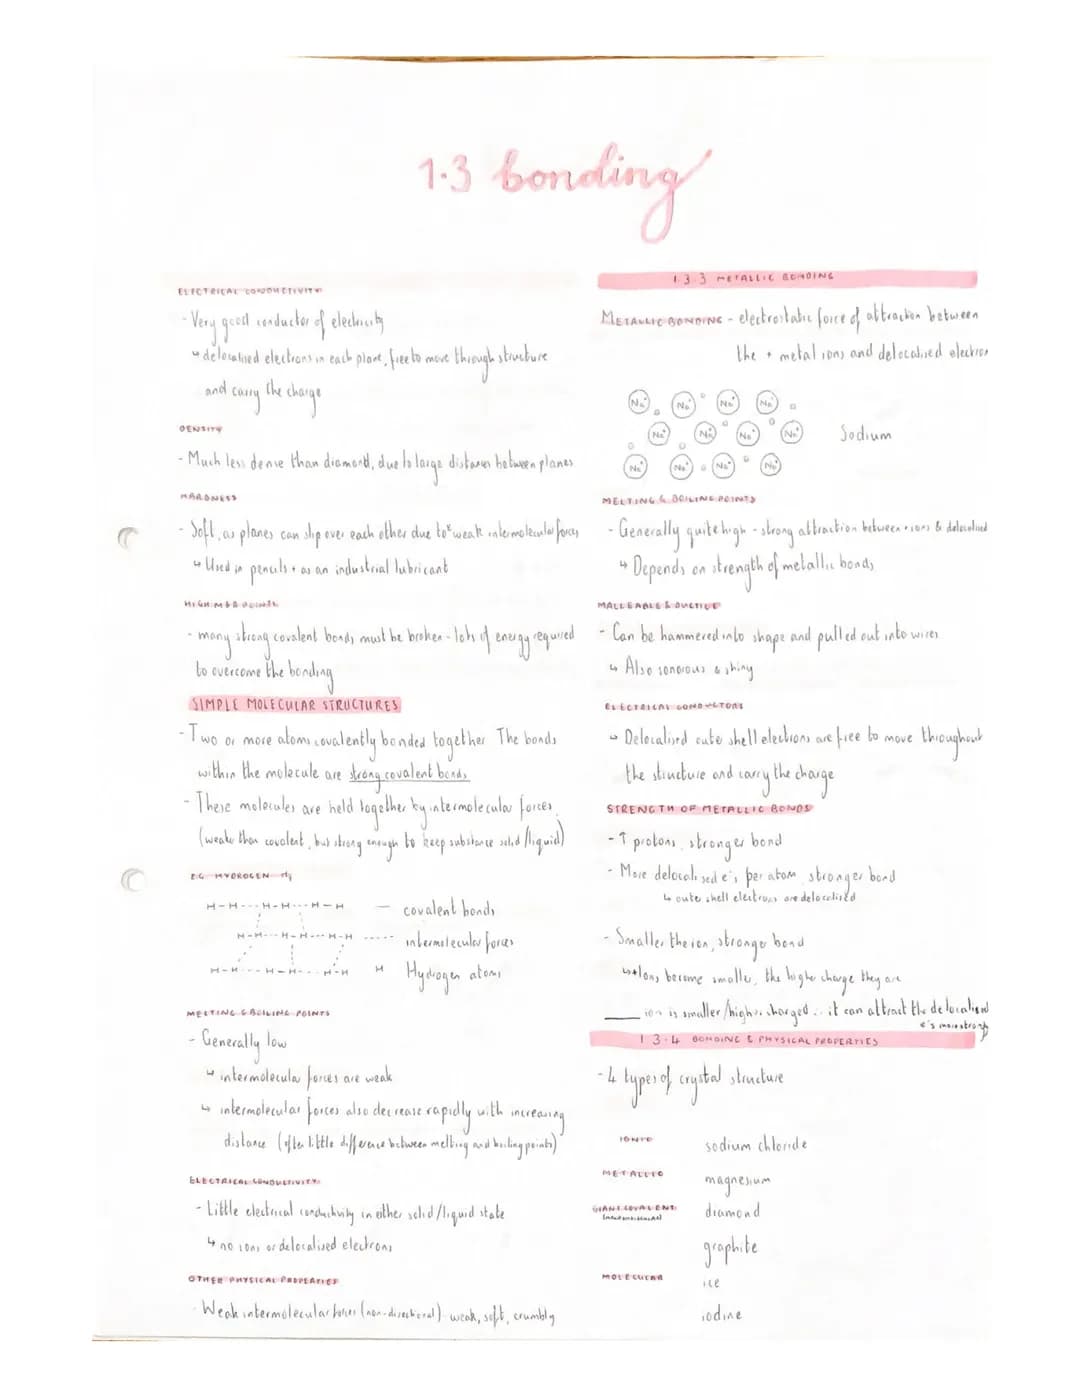 1.3 bonding
ELECTRICAL CONDUCTIVITY
- Very good conductor of electricity
↳ delocalised electrons in each plane, free to move through structure
and carry the charge
DENSITY
- Much less dense than diamond, due to large distances between planes
HARDNESS
- Soft, as planes can slip over each other due to weak intermolecular forces
↳ Used in pencils + as an industrial lubricant
HIGH M&B POINTS
- many strong covalent bonds must be broken - lots of energy required
to overcome the bonding
SIMPLE MOLECULAR STRUCTURES
- Two or more atoms covalently bonded together The bonds
within the molecule are strong covalent bonds
- These molecules are held together by intermolecular forces
(weaker than covalent, but strong enough to keep substance solid/liquid)
E.G. HYDROGEN H₂
H-H---H-H---H-H — covalent bonds
H-H---H-H---H-H ----- intermolecular forces
H-H---H-H---H-H H Hydrogen atoms
MELTING & BOILING POINTS
- Generally low
↳ intermolecular forces are weak
↳ intermolecular forces also decrease rapidly with increasing
distance (often little difference between melting and boiling points)
ELECTRICAL CONDUCTIVITY
- Little electrical conductivity in either solid/liquid state
↳ no ions or delocalised electrons
OTHER PHYSICAL PROPERTIES
- Weak intermolecular forces (non-directional) weak, soft, crumbly
1.3.3 METALLIC BONDING
METALLIC BONDING - electrostatic force of attraction between
the + metal ions and delocalised electron
Na⁺ Na⁺ Na⁺ Na⁺
Na⁺ Na⁺ Na⁺ Na⁺ Sodium
Na⁺ Na⁺ Na⁺ Na⁺
MELTING & BOILING POINTS
- Generally quite high - strong attraction between + ions & delocalised
↳ Depends on strength of metallic bonds
MALLEABLE & DUCTILE
- Can be hammered into shape and pulled out into wires
↳ Also sonorous & shiny
ELECTRICAL CONDUCTORS
↳ Delocalised outer shell electrons are free to move throughout
the structure and carry the charge
STRENGTH OF METALLIC BONDS
- ↑ protons, stronger bond
- More delocalised e's per atom, stronger bond
↳ outer shell electrons are delocalised
- Smaller the ion, stronger bond
↳ + Ions become smaller, the higher charge they are
ion is smaller/higher charged ∴ it can attract the delocalised
e's more strong
1.3.4 BONDING & PHYSICAL PROPERTIES
- 4 types of crystal structure
IONIC sodium chloride
METALLIC magnesium
GIANT COVALENT diamond
(macromolecular)
graphite
MOLECULAR ice
iodine